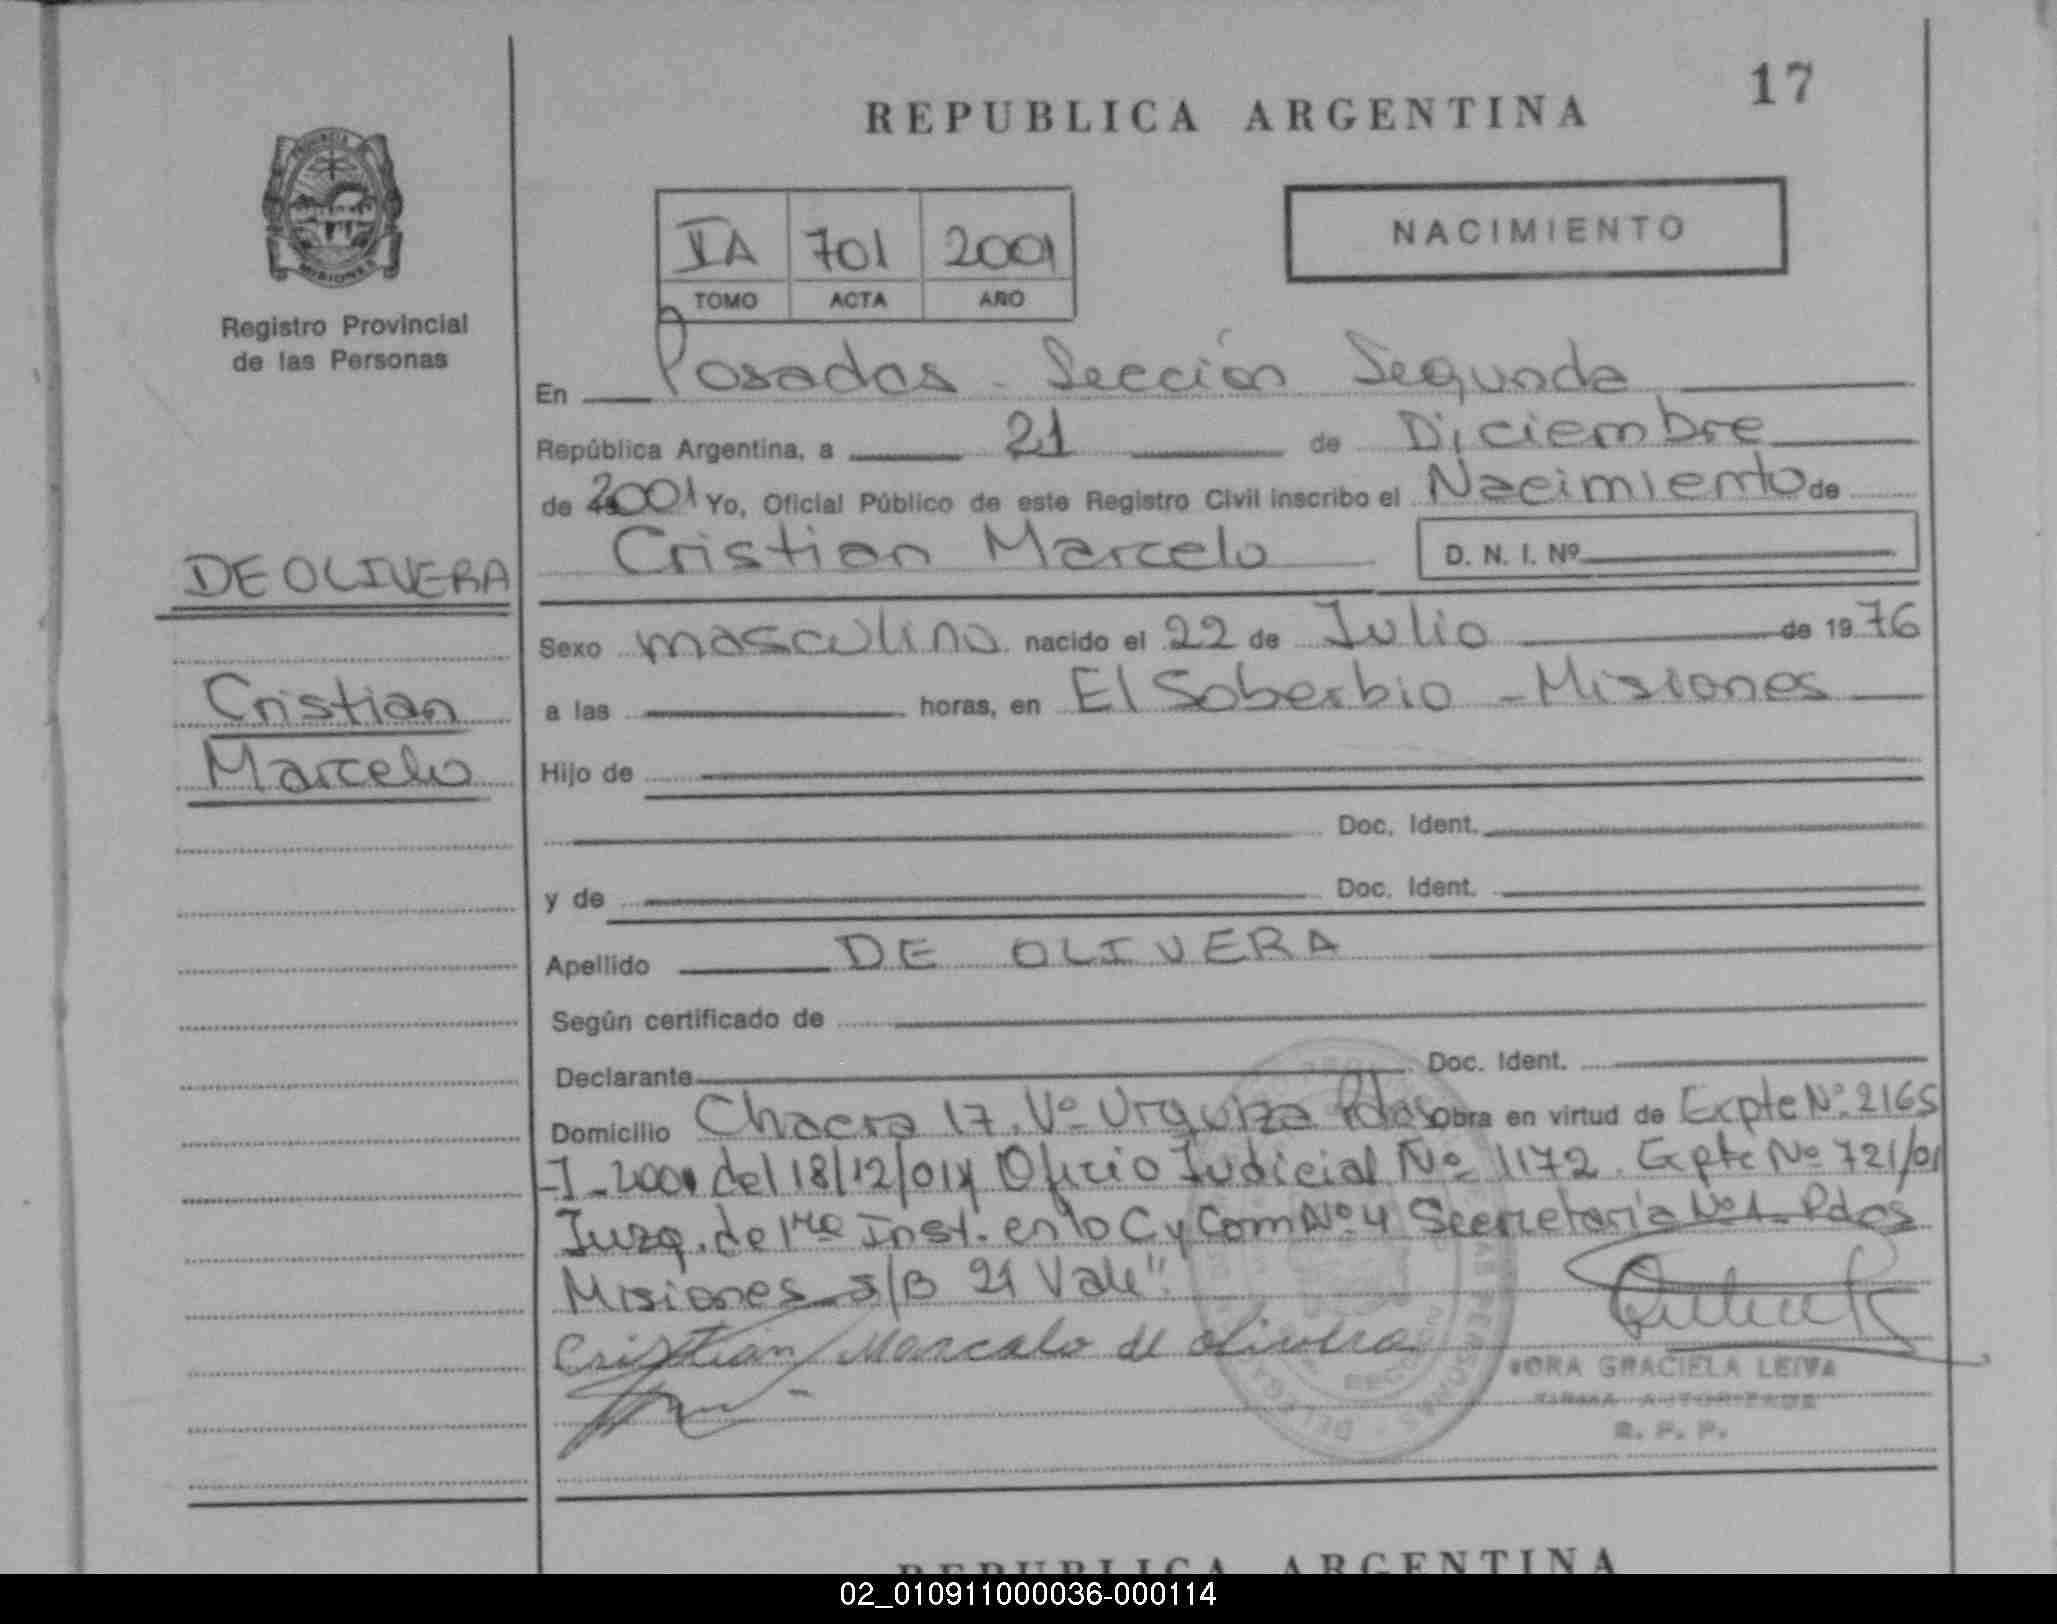 17
REPUBLICA ARGENTINA
NACIMIENTO
701 2001
TOMO ACTA AÑO
Registro Provincial
de las Personas
MISIONES
En Posadas - Sección Segunda
República Argentina, a 21 de Diciembre
de 2001 Yo, Oficial Público de este Registro Civil inscribo el Nacimiento de
Cristian Marcelo D. N. I. Nº
DE OLIVERA
Cristian
Marcelo
Sexo masculino nacido el 22 de Julio de 1976
a las horas, en El Soberbio - Misiones
Hijo de
Doc. Ident.
y de Doc. Ident.
Apellido DE OLIVERA
Según certificado de
Declarante Doc. Ident.
Domicilio Chacra 17. Vº Urquiza Pdas Obra en virtud de Expte Nº 2165
-J-2001 del 18/12/01 y Oficio Judicial Nº 1172. Expte Nº 721/01
Juzg. de 1ra Inst. en lo C y Com Nº 4 Secretaria Nº 1 - Pdas
Misiones s/B 21 Vale".
Cristian Marcelo de Olivera
NORA GRACIELA LEIVA
FIRMA AUTORIZADA
R. P. P.
REPUBLICA ARGENTINA
02_010911000036-000114